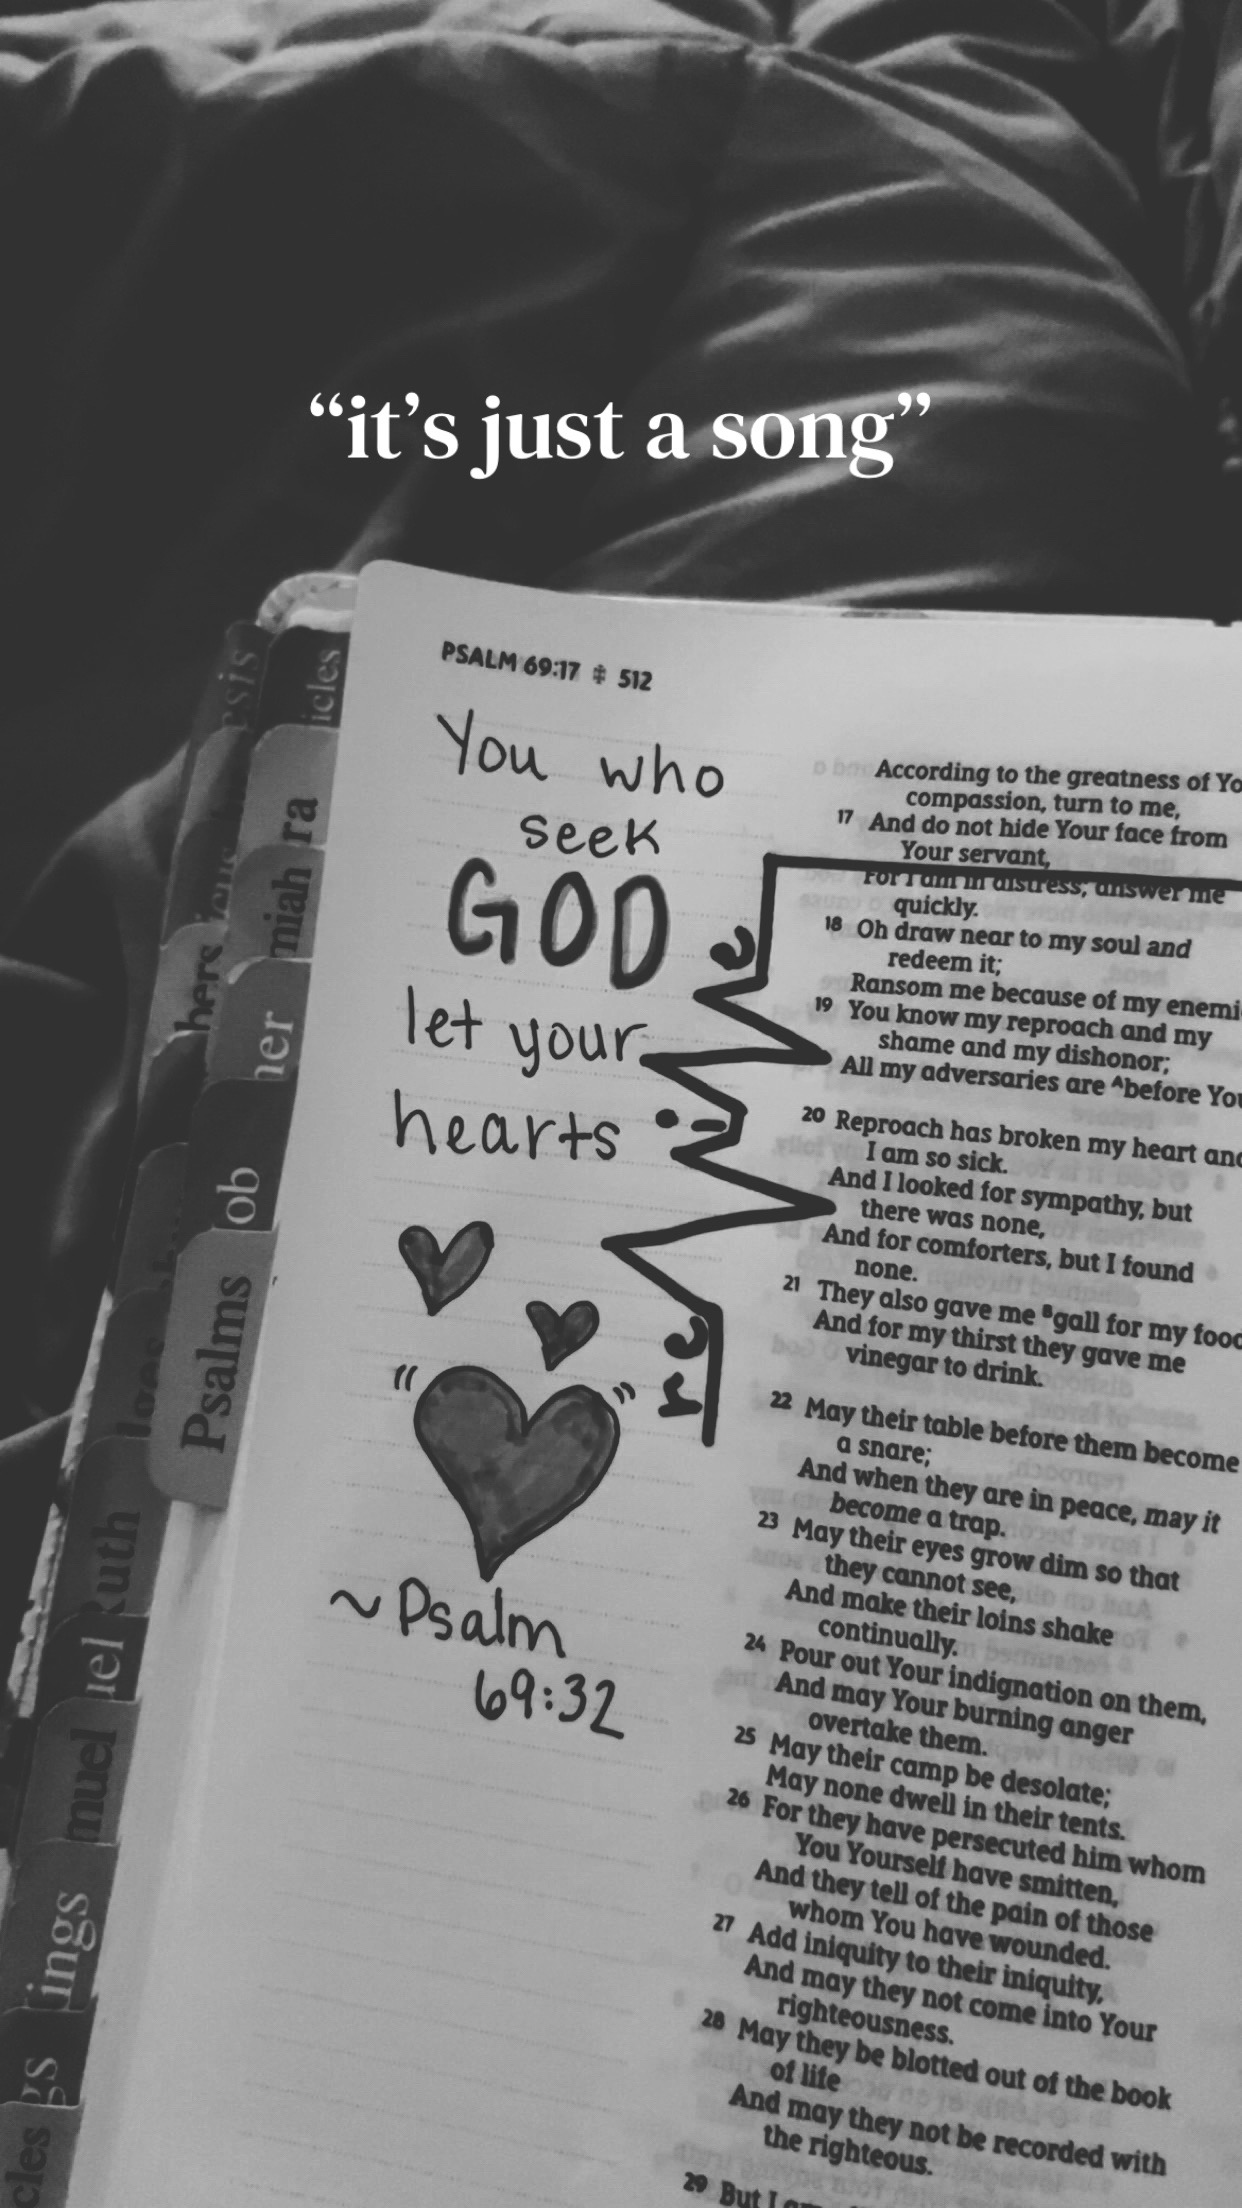 “it’s just a song”
PSALM 69:17 ⁜ 512
You who
seek
GOD
let your
hearts
re - • - e
“ ”
~ Psalm
69:32
According to the greatness of
compassion, turn to me,
17 And do not hide Your face from
Your servant,
For I am in distress; answer me
quickly.
18 Oh draw near to my soul and
redeem it;
Ransom me because of my
19 You know my reproach and my
shame and my dishonor;
All my adversaries are ᴬbefore
20 Reproach has broken my heart
I am so sick.
And I looked for sympathy, but
there was none,
And for comforters, but I found
none.
21 They also gave me ᴮgall for my
And for my thirst they gave me
vinegar to drink.
22 May their table before them become
a snare;
And when they are in peace, may it
become a trap.
23 May their eyes grow dim so that
they cannot see,
And make their loins shake
continually.
24 Pour out Your indignation on them,
And may Your burning anger
overtake them.
25 May their camp be desolate;
May none dwell in their tents.
26 For they have persecuted him whom
You Yourself have smitten,
And they tell of the pain of those
whom You have wounded.
27 Add iniquity to their iniquity,
And may they not come into Your
righteousness.
28 May they be blotted out of the book
of life
And may they not be recorded with
the righteous.
29 But I
icles
ra
miah
hers
her
ob
Psalms
Ruth
uel
muel
ings
gs
cles